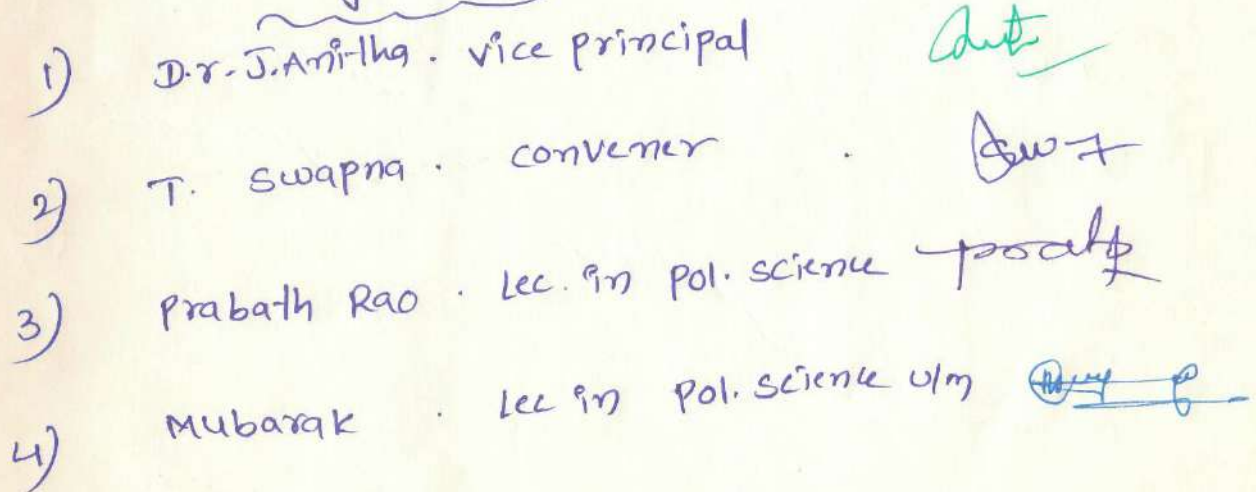 1) D.r. J.Anitha . vice principal
2) T. Swapna . convener .
3) Prabath Rao . Lec. in pol. science
4) Mubarak . Lec in pol. science u/m